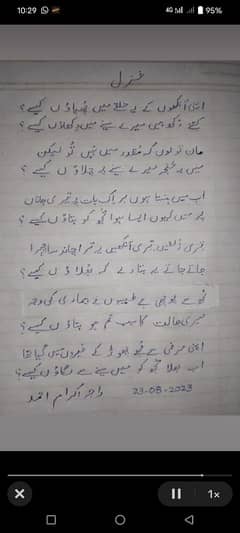 10:29
4G
95%
غزل
اپنی آنکھوں کے یہ میں چھپاؤں کیسے؟
کتنے دکھ ہیں میرے سینے میں دکھاؤں کیسے؟
مان تو لوں کہ مقدر میں نہیں تُو لیکن
میں یہ خنجر میرے سینے پہ چلاؤں کیسے؟
اب میں ہنستا ہوں ہر اک بات پہ تیری جاناں
میں کیوں ایسا ہوا تجھ کو بتاؤں کیسے؟
تیری زلفیں، تیری آنکھیں، یہ تیرا چاند سا چہرا
جاتے جاتے یہ بتا دے کہ بھلاؤں کیسے؟
مجھ سے پوچھی ہے طبیبوں نے بیماری کی وجہ
میری حالت کا سبب تم ہو بتاؤں کیسے؟
اپنی مرضی سے مجھے چھوڑ کے غیروں میں گیا تھا
اب بھلا تجھ کو میں سینے سے لگاؤں کیسے؟
راجہ اکرام احمد
23-08-2023
1×